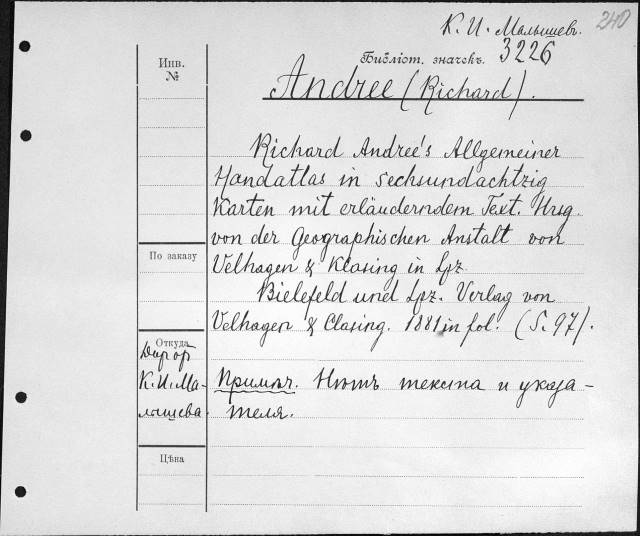 240
К. И. Малышевъ.
Библіот. значекъ. 3226
Инв.
№
Andree (Richard).
Richard Andree's Allgemeiner
Handatlas in sechsundachtzig
Karten mit erläuderndem Text. Hrsg.
von der Geographischen Anstalt von
По заказу
Velhagen & Klasing in Lpz.
Bielefeld und Lpz. Verlag von
Velhagen & Clasing. 1881 in fol. (S. 97).
Откуда
Даръ отъ
К. И. Ма-
лышева.
Примѣч. Нѣтъ текста и указа-
теля.
Цѣна